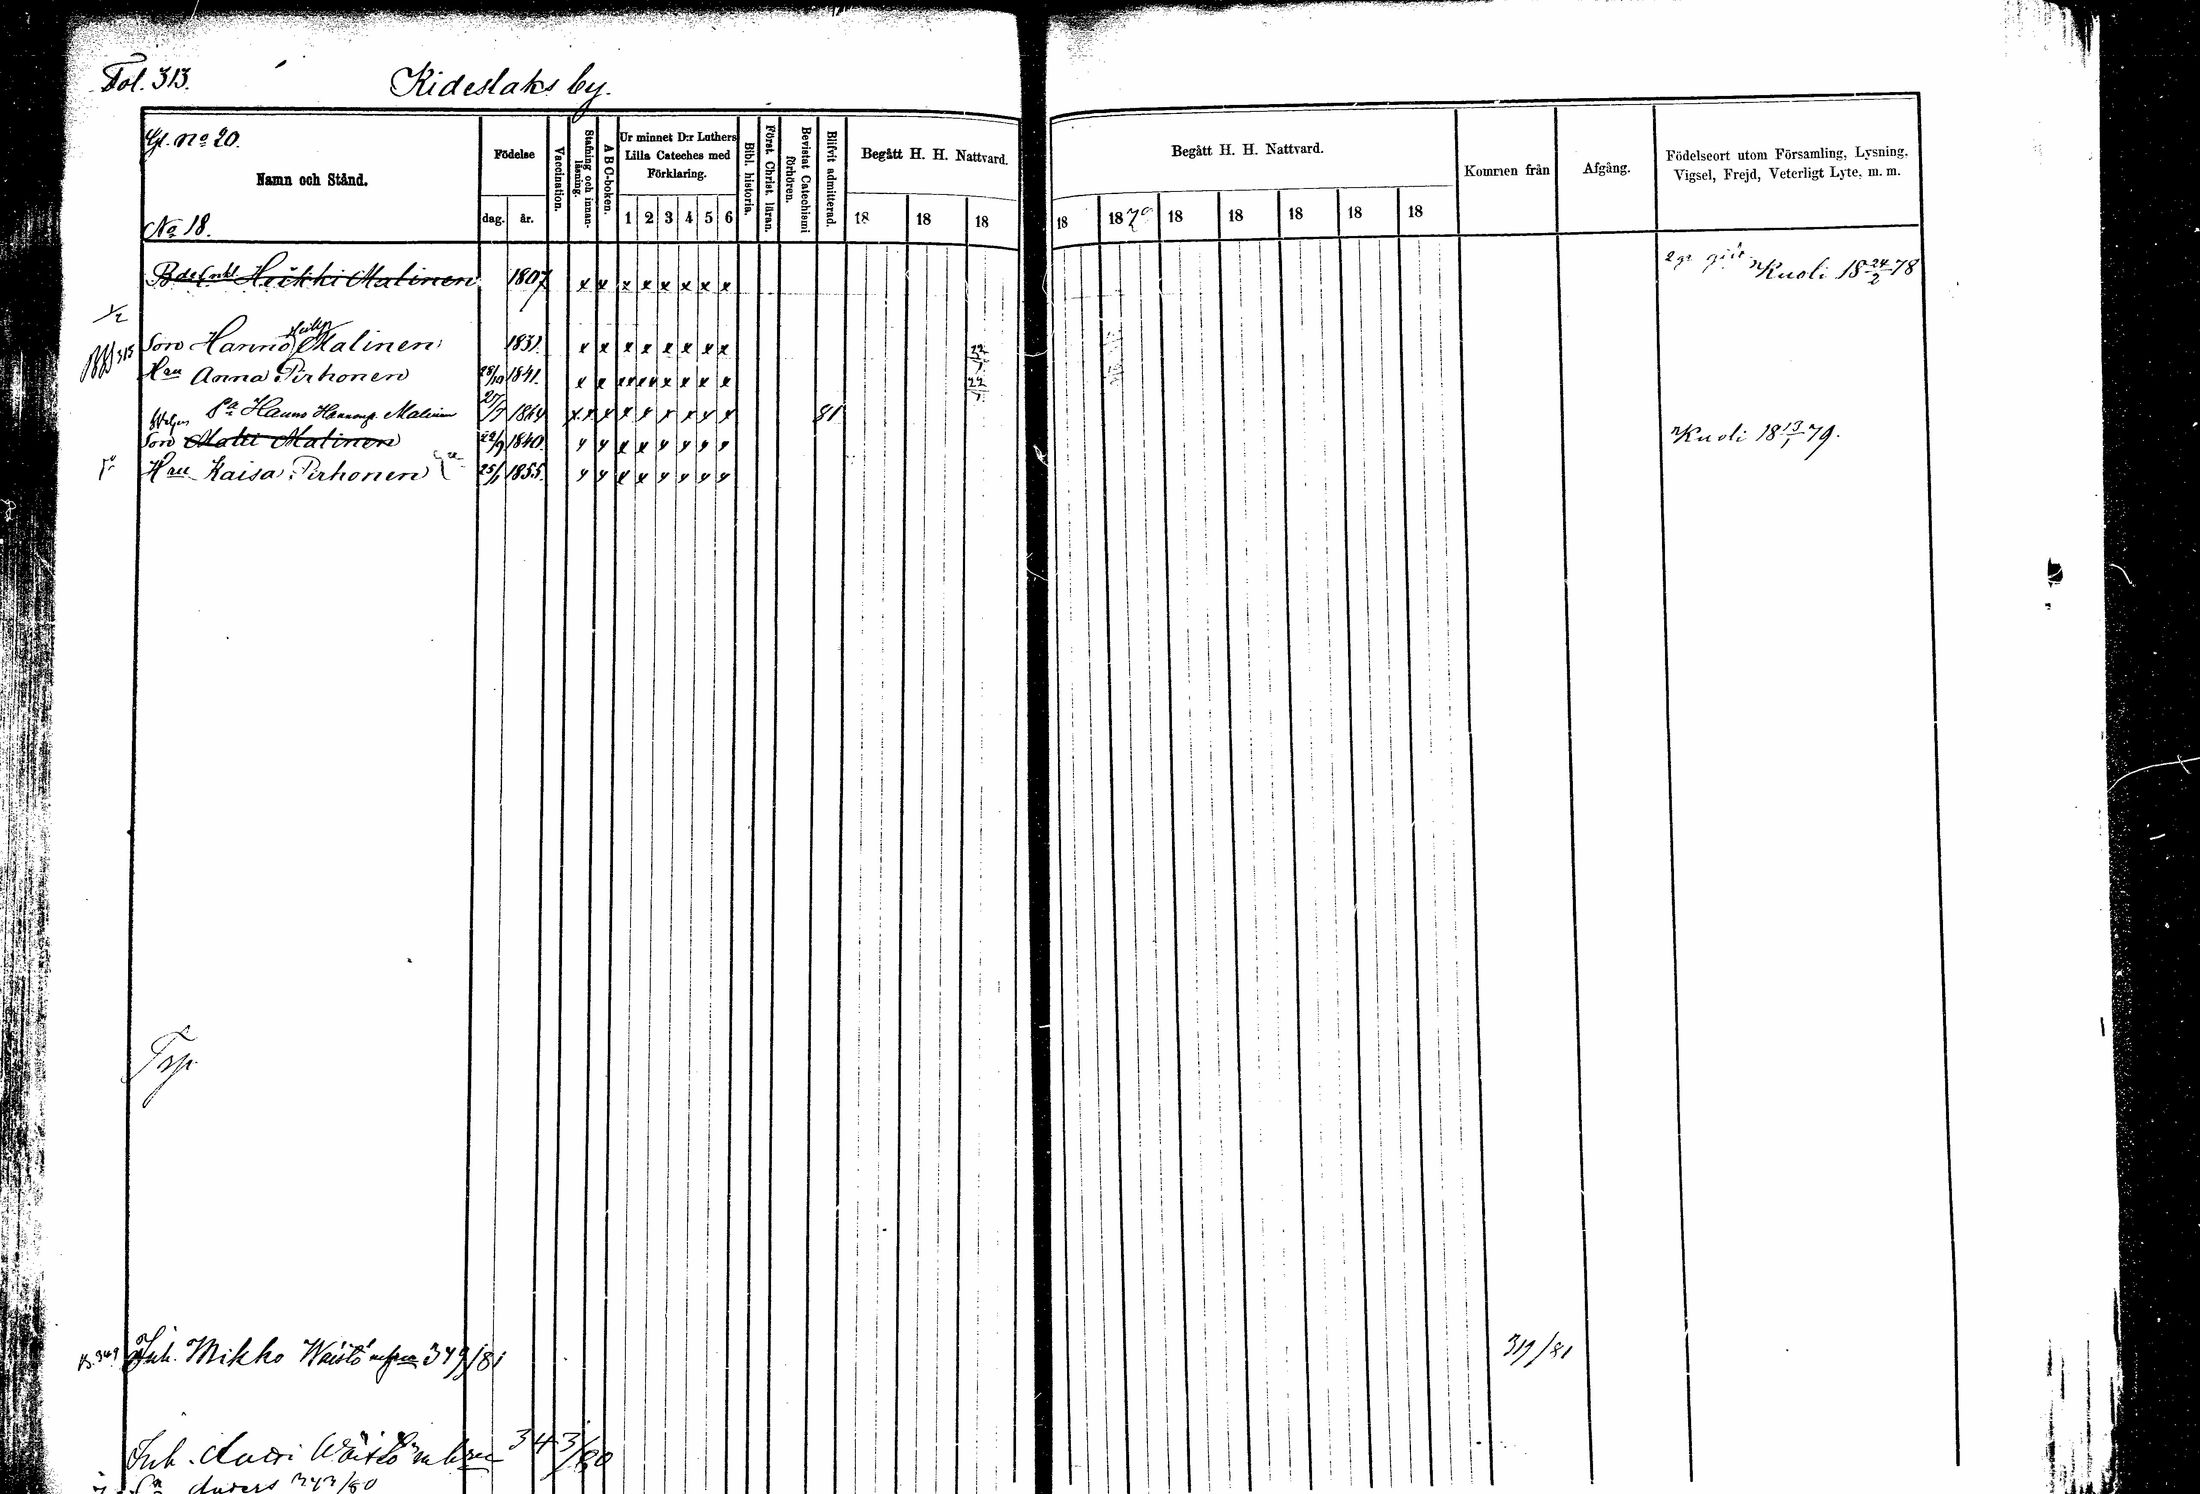 Fol. 313.
Kideslaks by.
Gl. No 20.
Namn och Stånd.
No 18.
Födelse
dag. år.
Vaccination.
Stafning och innanläsning.
A B C-boken.
Ur minnet D:r Luthers Lilla Cateches med Förklaring.
1 2 3 4 5 6
Bibl. historia.
Först. Christ. läran.
Bevistat Catechismi förhören.
Blifvit admitterad.
Begått H. H. Nattvard.
18 18 18
Begått H. H. Nattvard.
18 1879 18 18 18 18 18
Kommen från
Afgång.
Födelseort utom Församling, Lysning, Vigsel, Frejd, Veterligt Lyte, m. m.
Heikki Malinen 1807 x x x x x x x x Kuoli 18 24/2 78
1/2
315 Son Hannu Heikp Malinen 1831. x x x x x x x x 22/
Hru Anna Pirhonen 28/10 1841. x x x x x x x x x x 22/
Sa Hannu Hannunp. Malinen 27/7 1864 x x x x x x x x x 81
Son Matti Malinen 22/9 1840. x x x x x x x x Kuoli 18 13/1 79.
Hru Kaisa Pirhonen 25/1 1855. x x x x x x x x
Inh. Mikko Waistö 349/81 319/81
Inh. Antti Waistö m hru 343/80
Sa Anders 343/80